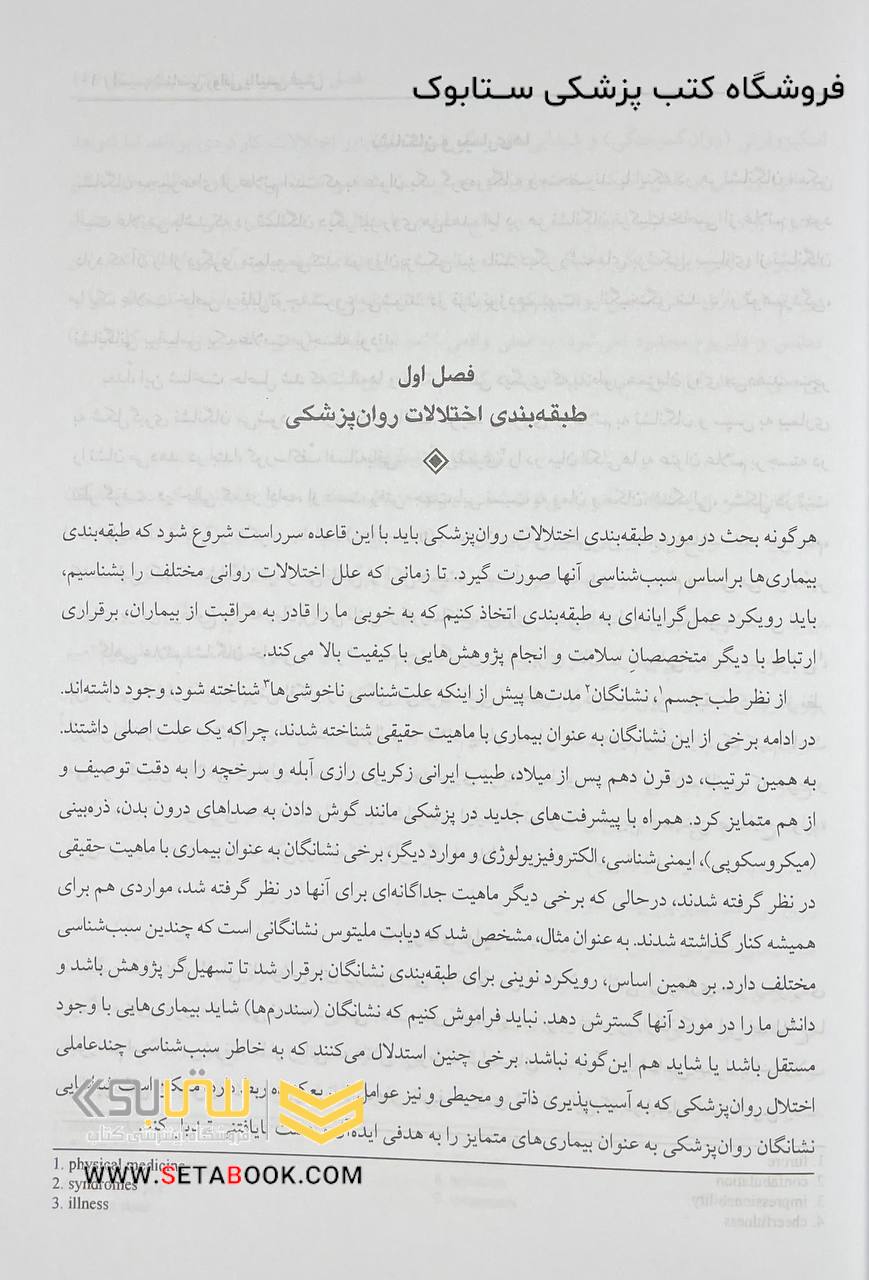 فروشگاه کتب پزشکی ستابوک
فصل اول
طبقه‌بندی اختلالات روان‌پزشکی
هرگونه بحث در مورد طبقه‌بندی اختلالات روان‌پزشکی باید با این قاعده سرراست شروع شود که طبقه‌بندی
بیماری‌ها براساس سبب‌شناسی آنها صورت گیرد. تا زمانی که علل اختلالات روانی مختلف را بشناسیم،
باید رویکرد عمل‌گرایانه‌ای به طبقه‌بندی اتخاذ کنیم که به خوبی ما را قادر به مراقبت از بیماران، برقراری
ارتباط با دیگر متخصصانِ سلامت و انجام پژوهش‌هایی با کیفیت بالا می‌کند.
از نظر طب جسم۱، نشانگان۲ مدت‌ها پیش از اینکه علت‌شناسی ناخوشی‌ها۳ شناخته شود، وجود داشته‌اند.
در ادامه برخی از این نشانگان به عنوان بیماری با ماهیت حقیقی شناخته شدند، چراکه یک علت اصلی داشتند.
به همین ترتیب، در قرن دهم پس از میلاد، طبیب ایرانی زکریای رازی آبله و سرخچه را به دقت توصیف و
از هم متمایز کرد. همراه با پیشرفت‌های جدید در پزشکی مانند گوش دادن به صداهای درون بدن، ذره‌بینی
(میکروسکوپی)، ایمنی‌شناسی، الکتروفیزیولوژی و موارد دیگر، برخی نشانگان به عنوان بیماری با ماهیت حقیقی
در نظر گرفته شدند، درحالی که برخی دیگر ماهیت جداگانه‌ای برای آنها در نظر گرفته شد، مواردی هم برای
همیشه کنار گذاشته شدند. به عنوان مثال، مشخص شد که دیابت ملیتوس نشانگانی است که چندین سبب‌شناسی
مختلف دارد. بر همین اساس، رویکرد نوینی برای طبقه‌بندی نشانگان برقرار شد تا تسهیل‌گر پژوهش باشد و
دانش ما را در مورد آنها گسترش دهد. نباید فراموش کنیم که نشانگان (سندرم‌ها) شاید بیماری‌هایی با وجود
مستقل باشد یا شاید هم این‌گونه نباشد. برخی چنین استدلال می‌کنند که به خاطر سبب‌شناسی چندعاملی
اختلال روان‌پزشکی که به آسیب‌پذیری ذاتی و محیطی و نیز عوامل
نشانگان روان‌پزشکی به عنوان بیماری‌های متمایز را به هدفی
ستابوک
فروشگاه اینترنتی کتاب
1. physical medicine
2. syndromes
3. illness
WWW.SETABOOK.COM